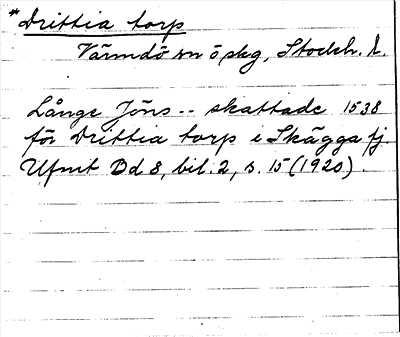 *Drittia torp
Värmdö sn ö skg, Stockh. l.
Långe Jöns -- skattade 1538
för Drittia torp i Skägga fj.
Ufmt Dd 8, bil. 2, s. 15 (1920).